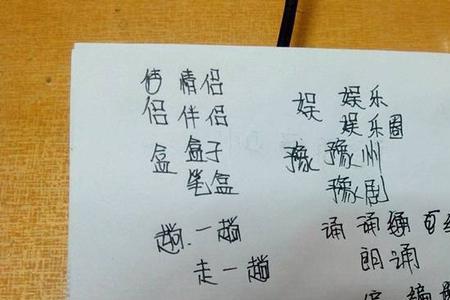 情侣
侣 伴侣
盒 盒子
笔盒
趟 一趟
走一趟
娱 娱乐
娱乐圈
豫 豫州
豫剧
诵 诵
朗诵